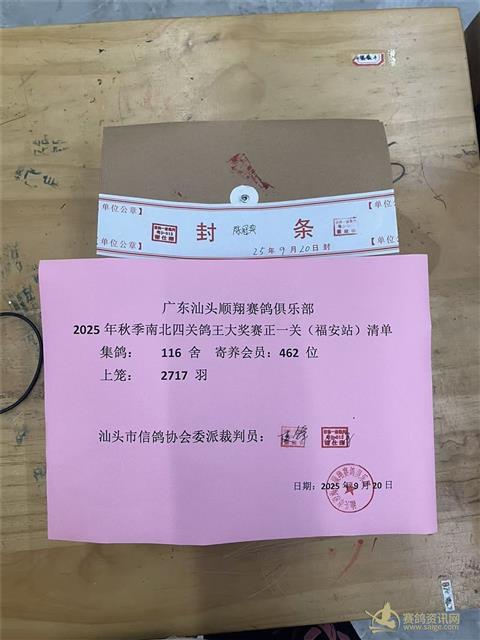 单位公章】
【单位公
封 陈冠奕 条
25年9月20日封
单位公章】
【单位公章
广东汕头顺翔赛鸽俱乐部
2025年秋季南北四关鸽王大奖赛正一关（福安站）清单
集鸽： 116 舍 寄养会员：462 位
上笼： 2717 羽
汕头市信鸽协会委派裁判员：
日期：2025年9月20日
赛鸽资讯网
www.saige.com